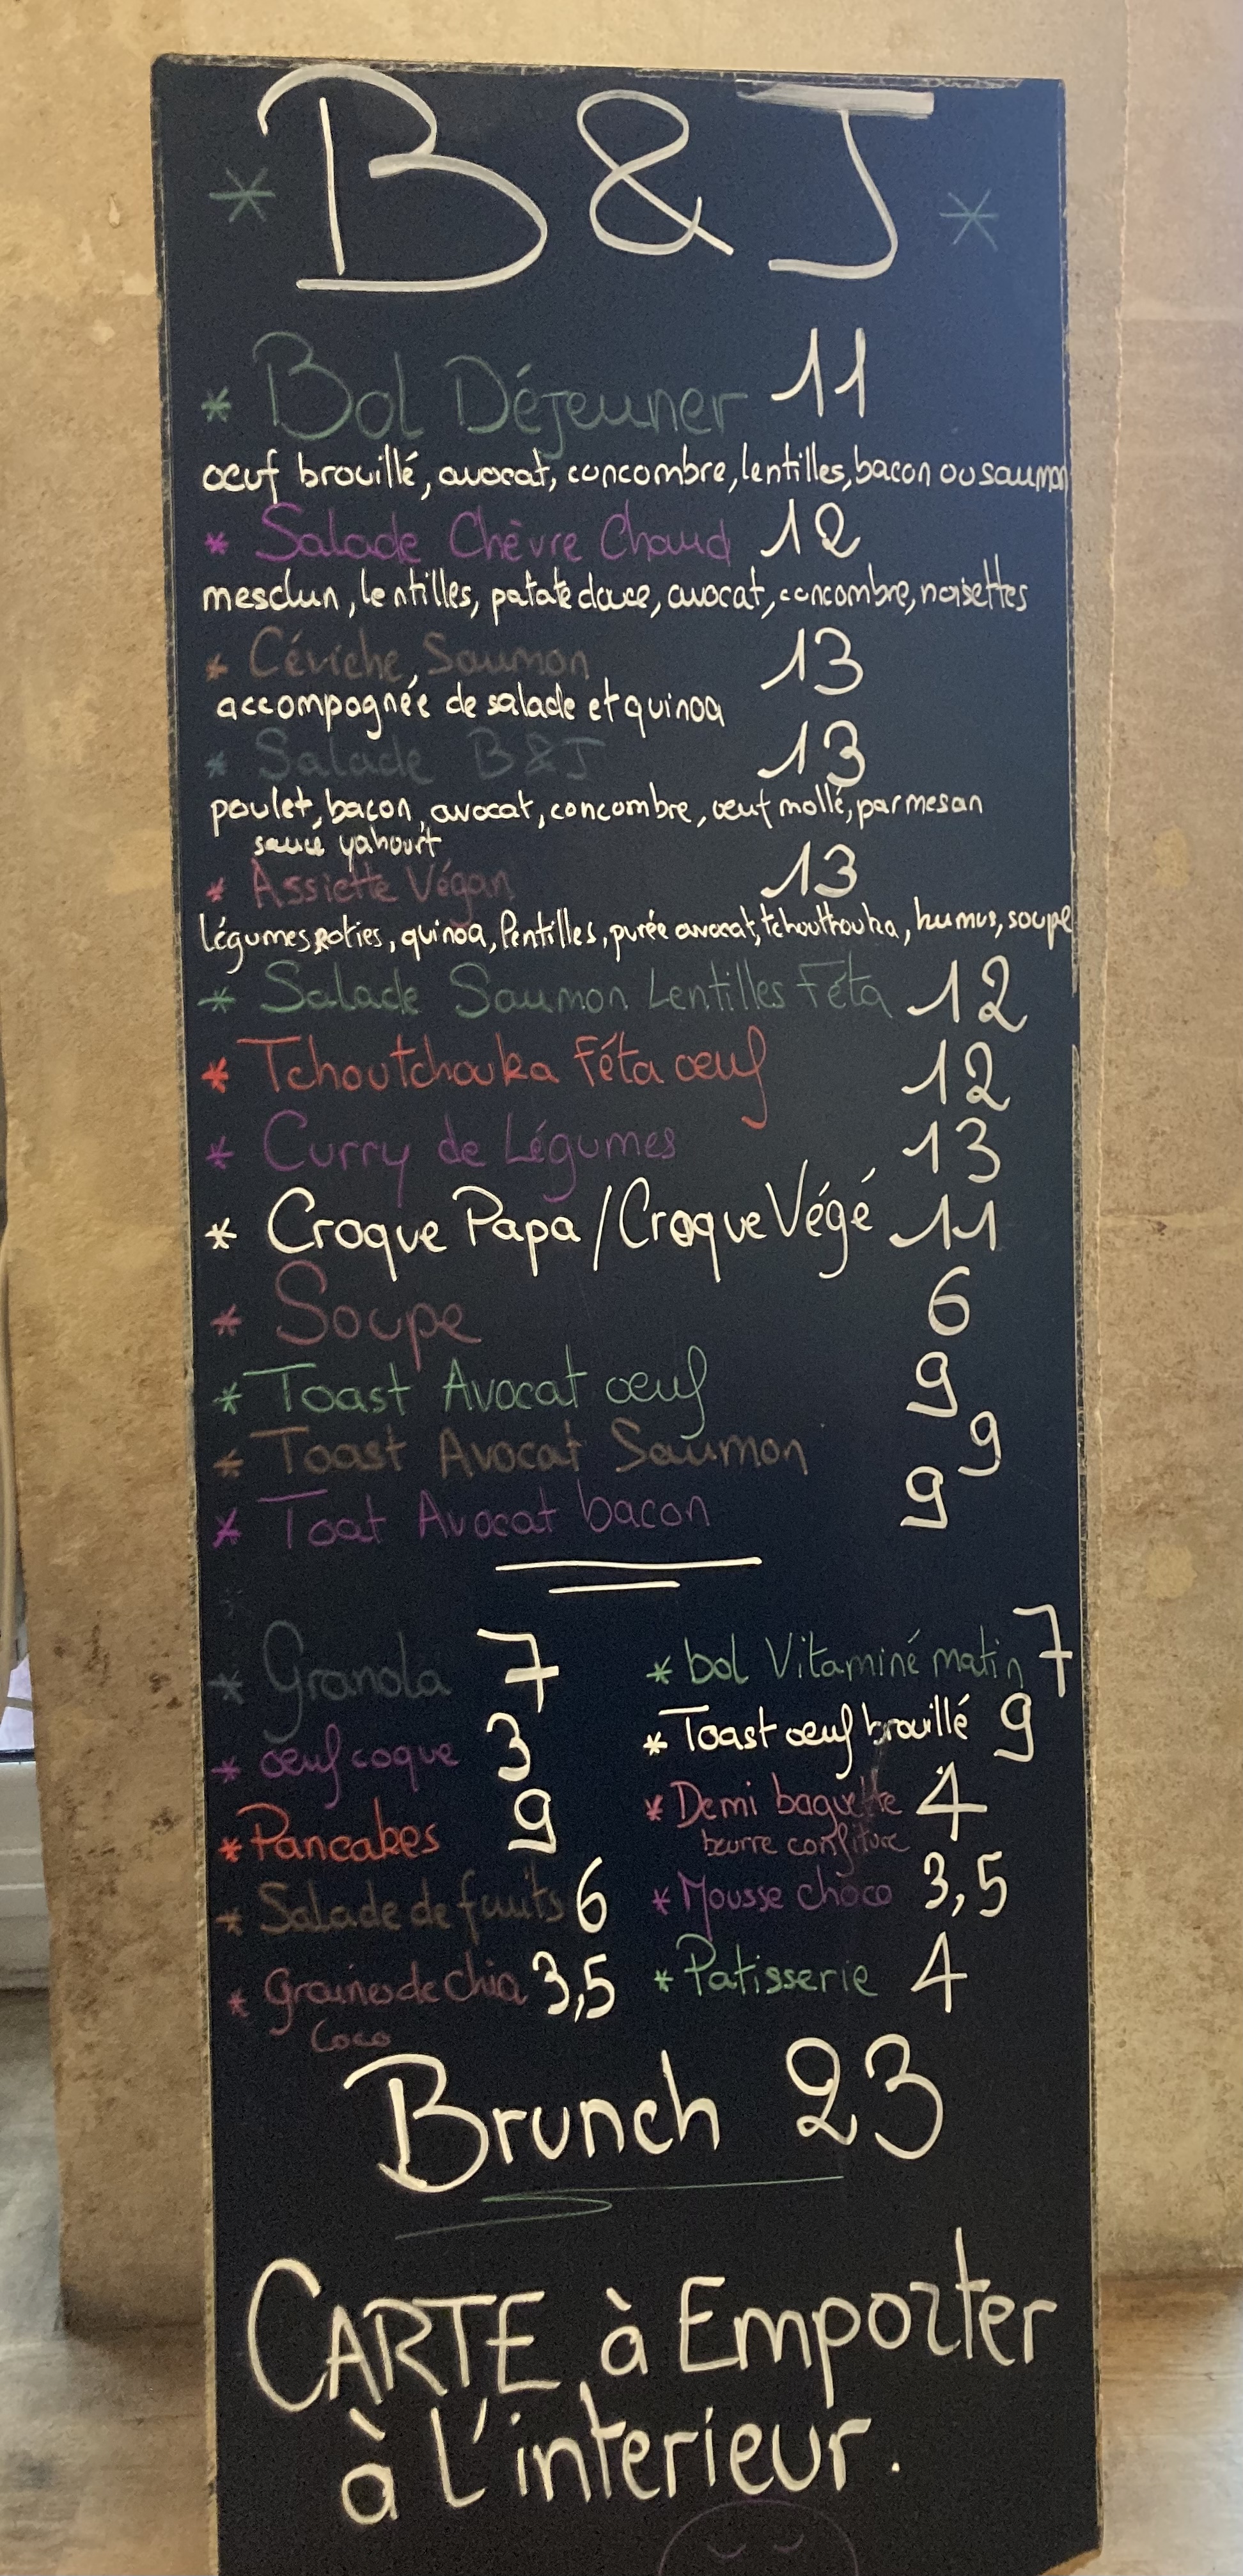 * B & J *
* Bol Déjeuner 11
oeuf brouillé, avocat, concombre, lentilles, bacon ou saumon
* Salade Chèvre Chaud 12
mesclun, lentilles, patate douce, avocat, concombre, noisettes
* Céviche Saumon 13
accompagnée de salade et quinoa
* Salade B&J 13
poulet, bacon, avocat, concombre, oeuf mollé, parmesan
sauce yahourt
* Assiette Végan 13
légumes roties, quinoa, lentilles, purée avocat, tchouthouka, humus, soupe
* Salade Saumon Lentilles Féta 12
* Tchoutchouka Féta oeuf 12
* Curry de Légumes 13
* Croque Papa / Croque Végé 11
* Soupe 6
* Toast Avocat oeuf 9
* Toast Avocat Saumon 9
* Toat Avocat bacon 9
* Granola 7
* oeuf coque 3
* Pancakes 9
* Salade de fuits 6
* Graines de chia 3,5
Coco
* bol Vitaminé matin 7
* Toast oeuf brouillé 9
* Demi baguette 4
beurre confiture
* Mousse choco 3,5
* Patisserie 4
Brunch 23
CARTE à Emporter
à L'interieur.